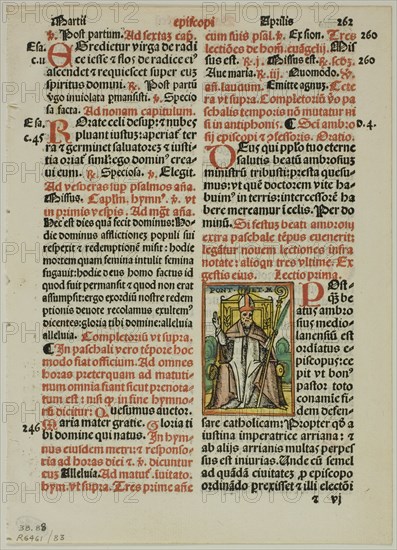 Martii
episcopi
Aprilis
262
℣. Post partum. Ad sextā cap̄.
Esa.
c.11
EGredietur virga de radi
ce iesse ⁊ flos de radice ei⁹
ascendet ⁊ requiescet super eum
spiritus domini. ℟. Post partū
v̄go inuiolata p̄mansisti. ℣. Specio
sa facta. Ad nonam capitulum.
Esa.
c.45
ROrate celi desup̄ ⁊ nubes
pluant iustum: aperiat̄ ter
ra ⁊ germinet saluatorē: ⁊ iusti
tia oriat̄ simul: ego dominꝰ crea
ui eum. ℟. Speciosa. ℣. Elegit.
Ad vesperas sup̄ psalmos añā.
Missus. Capl'm. hymnꝰ. ℣. vt
in primis vesp̄is. Ad mḡt añā.
Hec est dies quā fecit dominus: hodie
dominus afflictionem populi sui
respexit ⁊ redemptionē misit: hodie
mortem quam femina intulit femina
fugauit: hodie deus homo factus id
quod fuit permansit ⁊ quod non erat
assumpsit: ergo exordiū nostre redem
ptionis deuote recolamus exultem⁹
dicentes: gloria tibi domine: alleluia
alleluia. Completoriū vt supra.
In paschali vero tēpore hoc
modo fiat officium. Ad omnes
horas preterquam ad matuti
num omnia fiant sicut prenota
tum est: nisi q̄ in fine hymno
rū dicitur: Quesumus auctor.
246
Maria mater gratie. Gloria ti
bi domine qui natus. In hym
nus eiusdem metri: ⁊ responso
ria ad horas diei ⁊ ℣. dicuntur
cū Alleluia. Ad matuṫ. iuitato.
hym. vt supra. Tres prime añe
cum suis psal'. ℣. Ex sion. Tres
260
lectiões de homī. euāgelij. Mis
sus est. ℟. j. Missus est. ℟. sc̄z.
260
Aue maria. ℟. iij. Quomodo. ℟.
añ. laudum. Emitte agnuz. Ce
tera vt supra. Completoriū vo pa
schalis temporis nō mutatur ni
si in antiphonis. Sc̄i ambro
D.4.
sij ep̄i ⁊ ɔfessoris. Oratio.
DEus qui pp̄lo tuo eterne
salutis beatū ambrosiuz
ministrū tribuisti: presta quesu-
mus: vt quē doctorem vite ha-
buim⁹ in terris: intercessorē ha
bere mereamur ī celis. Per do
minū. Si festuz beati ambrosij
extra paschale tēpus euenerit:
legātur nouem lectiones infra
notate: alioq̄n tres vltime. Ex
gestis eius. Lectio prima.
PONT MAX
POst-
q̄ȝ be
at⁹ am̄b
sius medio
lanensiū est
ordīatus e
piscopus: ce
pit vt bon⁹
pastor toto
conamīe fi-
dem defen-
sare catholicam: Propter qđ a
iustina imperatrice arriana: ⁊
ab alijs arrianis multas perpes
sus est iniurias. Unde cū semel
ad quandā ciuitatez, ꝓ episcopo
ordināđo prexisset ⁊ illi electiōi
⁊ vj
38.83
= R6461/83